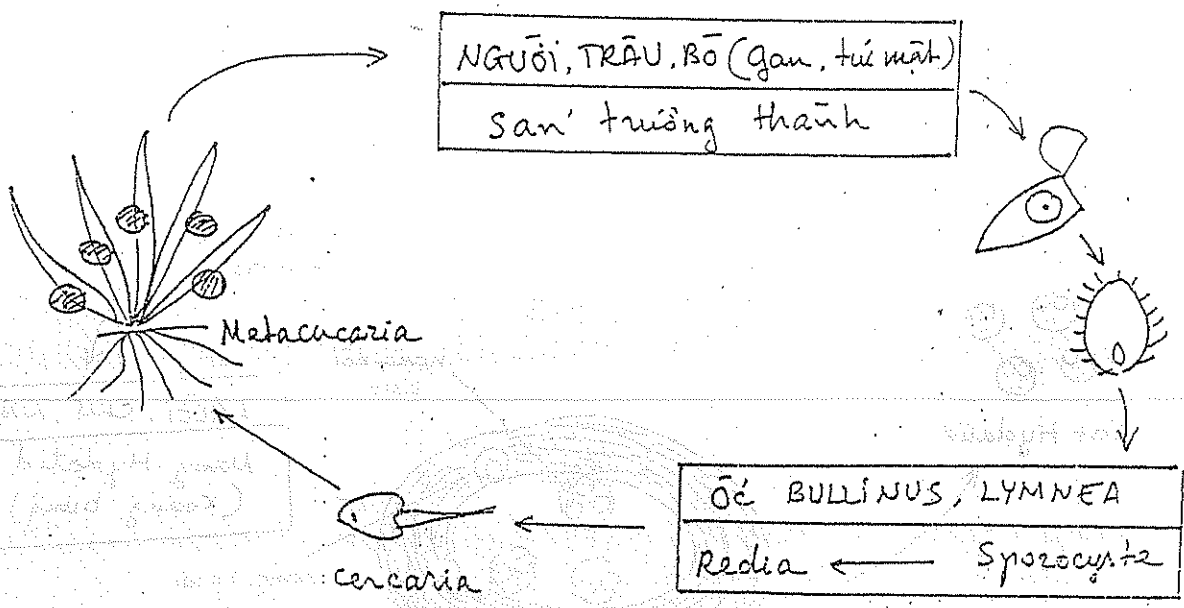 NGƯỜI, TRÂU, BÒ (gan, túi mật)
Sán trưởng thành
Metacucaria
ỐC BULLINUS, LYMNEA
Redia ← Sporocyste
cercaria